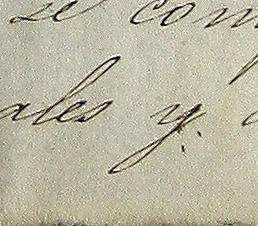 se com
ales y.